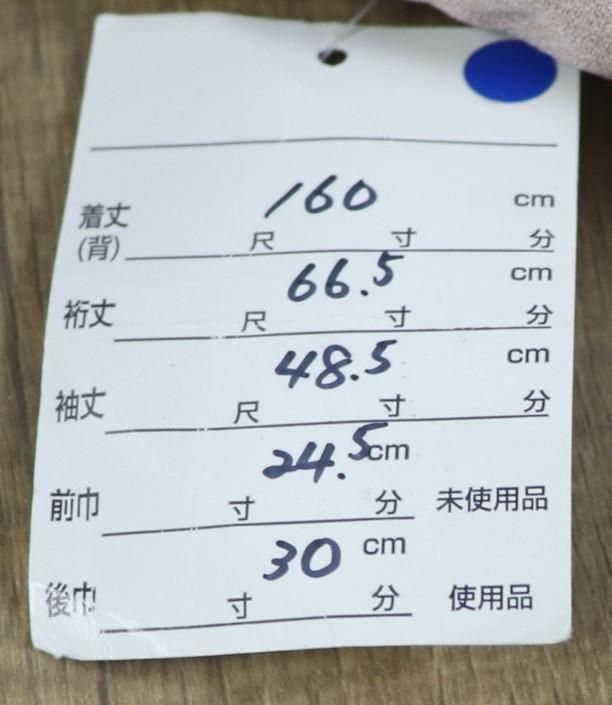 160 cm
着丈
(背) 尺 寸 分
66.5 cm
裄丈 尺 寸 分
48.5 cm
袖丈 尺 寸 分
24.5 cm
前巾 寸 分 未使用品
30 cm
後巾 寸 分 使用品